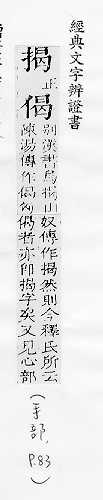 經典文字辨證書
揭正
偈
別漢書烏揭匈奴傳作揭然則今釋氏所云
陳湯傳作偈偈者亦即揭字矣又見心部
(手部, P.83)